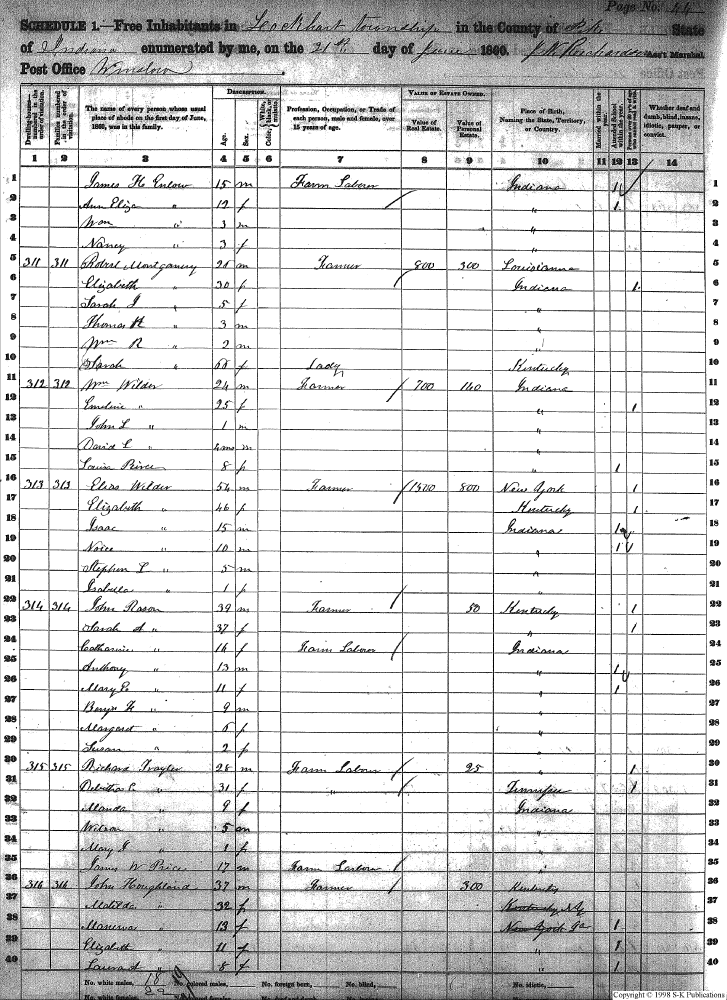 Page No. 44
SCHEDULE 1.—Free Inhabitants in Lockhart Township in the County of Pike State
of Indiana enumerated by me, on the 21st day of June 1860. J. W. Richardson Ass't Marshal.
Post Office Winslow
Dwelling-houses—numbered in the order of visitation.
Families numbered in the order of visitation.
The name of every person whose usual place of abode on the first day of June, 1860, was in this family.
DESCRIPTION.
Age.
Sex.
Color, White, black, or mulatto.
Profession, Occupation, or Trade of each person, male and female, over 15 years of age.
VALUE OF ESTATE OWNED.
Value of Real Estate.
Value of Personal Estate.
Place of Birth, Naming the State, Territory, or Country.
Married within the year.
Attended School within the year.
Whether deaf and dumb, blind, insane, idiotic, pauper, or convict.
1 2 3 4 5 6 7 8 9 10 11 12 13 14
1 James H Enlow 15 m Farm Laborer Indiana 1 1
2 Ann Eliza " 12 f " 1 2
3 Wm " 3 m " 3
4 Nancy " 3 f " 4
5 311 311 Robert Montgomery m Farmer 800 300 Louisianna 5
6 Elizabeth " 30 f Indiana 1 6
7 Sarah J " 5 f " 7
8 Thomas H " 3 m " 8
9 Wm R " 2 m " 9
10 Sarah " f Lady Kentucky 10
11 312 312 Wm Wilder 24 m Farmer 700 140 Indiana 11
12 Emeline " 25 f " 1 12
13 John L " 1 m " 13
14 David L " 4mo m " 14
15 Louisa 8 f " 1 15
16 313 313 Elias Wilder 54 m Farmer 1500 800 New York 1 16
17 Elizabeth " 46 f Kentucky 1 17
18 Isaac " 15 m Indiana 1 18
19 10 m " 1 19
20 Stephen L " 5 m " 20
21 Isabella " 1 f " 21
22 314 314 John Rason 39 m Farmer 50 Kentucky 1 22
23 Sarah A " 37 f " 1 23
24 Catharine " 16 f Farm Laborer Indiana 24
25 Anthony " 13 m " 1 25
26 Mary E " 11 f " 1 26
27 Benjn F " 9 m " 27
28 Margaret " 6 f " 28
29 Susan " 2 f " 29
30 315 315 Richard Traylor 28 m Farm Laborer 25 " 1 30
31 31 f " Tennessee 1 31
32 Manda " 9 f Indiana 32
33 Wilson " 5 m " 33
34 Mary J " 1 f " 34
35 James W Price 17 m Farm Laborer " 35
36 316 316 John Houghland 37 m Farmer 300 Kentucky 36
37 Matilda " 32 f Kentucky 37
38 Manerva " 13 f New York 1 38
39 Elizabeth " 11 f 1 39
40 " 8 f 1 40
No. white males, 18 No. colored males, No. foreign born, No. blind, No. idiotic,
No. white females, 22
Copyright © 1998 S-K Publications